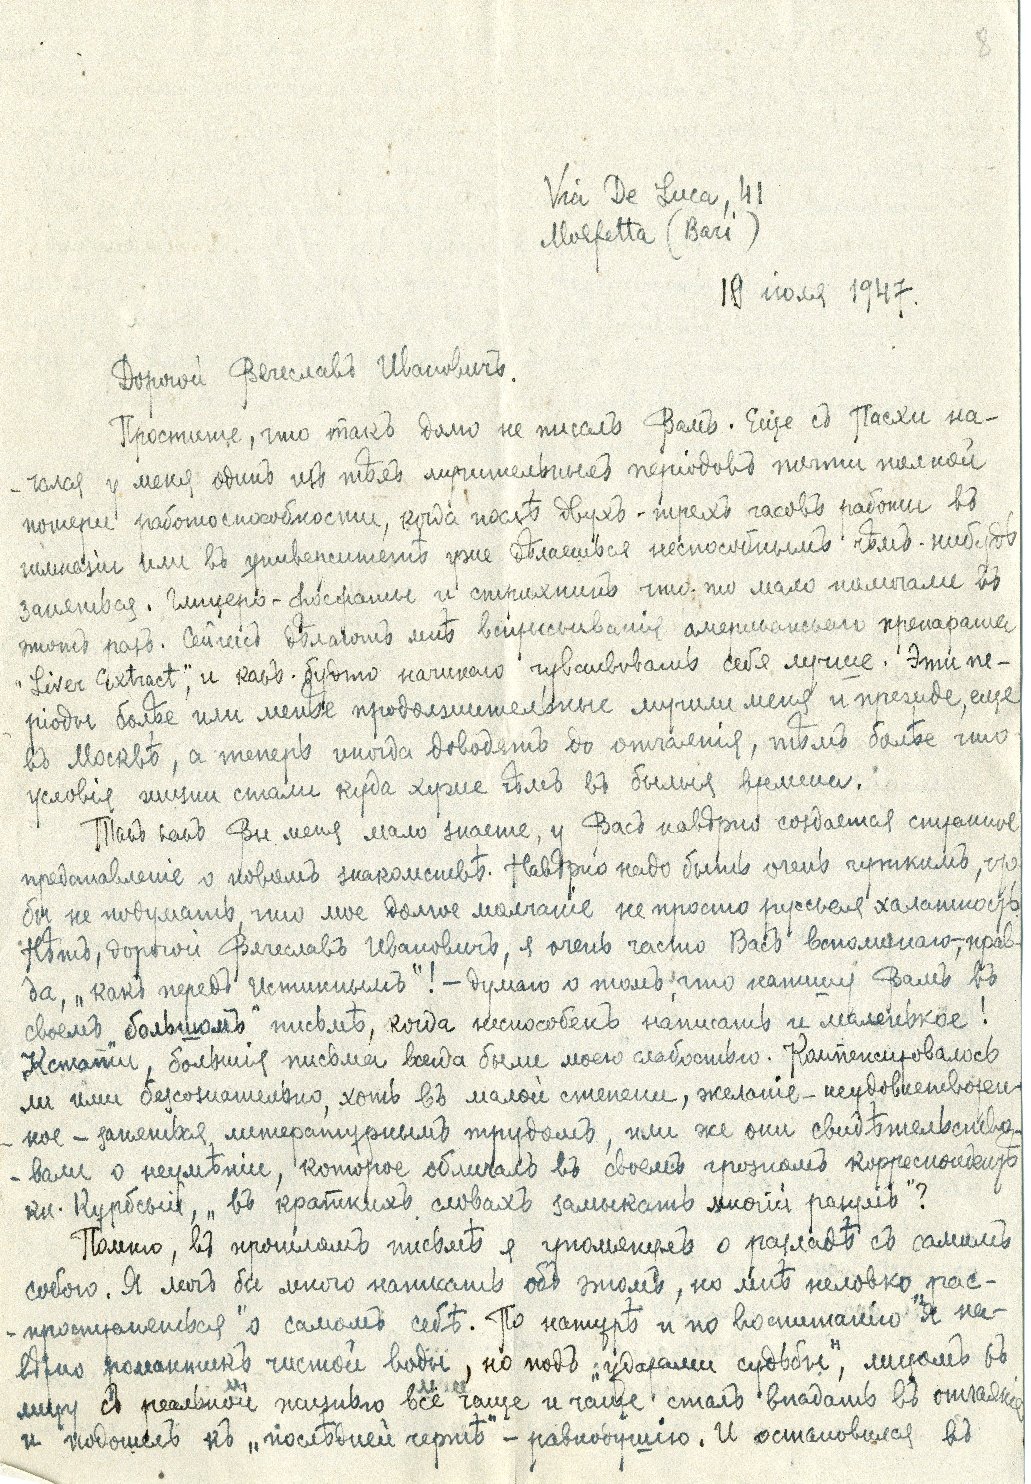 8
Via De Luca, 41
Molfetta (Bari)
18 іюля 1947.
Дорогой Вячеславъ Ивановичъ.
Простите, что такъ долго не писалъ Вамъ. Еще съ Пасхи на-
-чался у меня одинъ изъ тѣхъ мучительныхъ періодовъ почти полной
потери работоспособности, когда послѣ двухъ-трехъ часовъ работы въ
гимназіи или въ университетѣ уже дѣлаешься неспособнымъ чѣмъ-нибудь
заняться. Глицеро-фосфаты и стрихнинъ что-то мало помогали въ
этотъ разъ. Сейчасъ дѣлаютъ мнѣ вспрыскиванія американскаго препарата
"Liver Extract", и какъ-будто начинаю чувствовать себя лучше. Эти пе-
ріоды болѣе или менѣе продолжительные мучили меня и прежде, еще
въ Москвѣ, а теперь иногда доводятъ до отчаянія, тѣмъ болѣе что
условія жизни стали куда хуже чѣмъ въ былыя времена.
Такъ какъ Вы меня мало знаете, у Васъ навѣрно создается странное
представленіе о новомъ знакомствѣ. Навѣрно надо быть очень чуткимъ, что
бы не подумать, что мое долгое молчаніе не просто русская халатность.
Нѣтъ, дорогой Вячеславъ Ивановичъ, я очень часто Васъ вспоминаю, -прав-
да, „какъ передъ Истиннымъ"! - думаю о томъ, что напишу Вамъ въ
своемъ „большомъ" письмѣ, когда неспособенъ написать и маленькое!
Кстати, большія письма всегда были моею слабостью. Компенсировалось
ли ими безсознательно, хоть въ малой степени, желаніе - неудовлетворен-
-ное - заняться литературнымъ трудомъ, или же они свидѣтельство-
-вали о неумѣніи, которое обличалъ въ своемъ грозномъ корреспондентѣ
кн. Курбскій, „въ краткихъ словахъ замыкать многій разумъ"?
Помню, въ прошломъ письмѣ я упомянулъ о разладѣ съ самимъ
собою. Я могъ бы много написать объ этомъ, но мнѣ неловко „рас-
-пространяться" о самомъ себѣ. По натурѣ и по воспитанію я на-
вѣрно романтикъ чистой воды, но подъ „ударами судьбы", лицомъ къ
лицу съ реальной жизнью всё чаще и чаще сталъ впадать въ отчаяніе
и подошелъ къ „послѣдней чертѣ" - равнодушію. И остановился въ